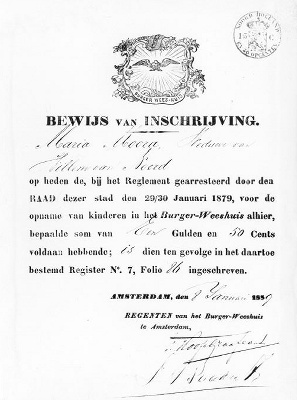 BURGER WEES-HUIS
BEWIJS VAN INSCHRIJVING.
Maria Weduwe van
Willem van Noord
op heden de, bij het Reglement gearresteerd door den
RAAD dezer stad den 29/30 Januari 1879, voor de
opname van kinderen in het Burger-Weeshuis alhier,
bepaalde som van Een Gulden en 50 Cents
voldaan hebbende; is dien ten gevolge in het daartoe
bestemd Register Nº. 7, Folio 86 ingeschreven.
AMSTERDAM, den 2 Januari 1889
REGENTEN van het Burger-Weeshuis
te Amsterdam,